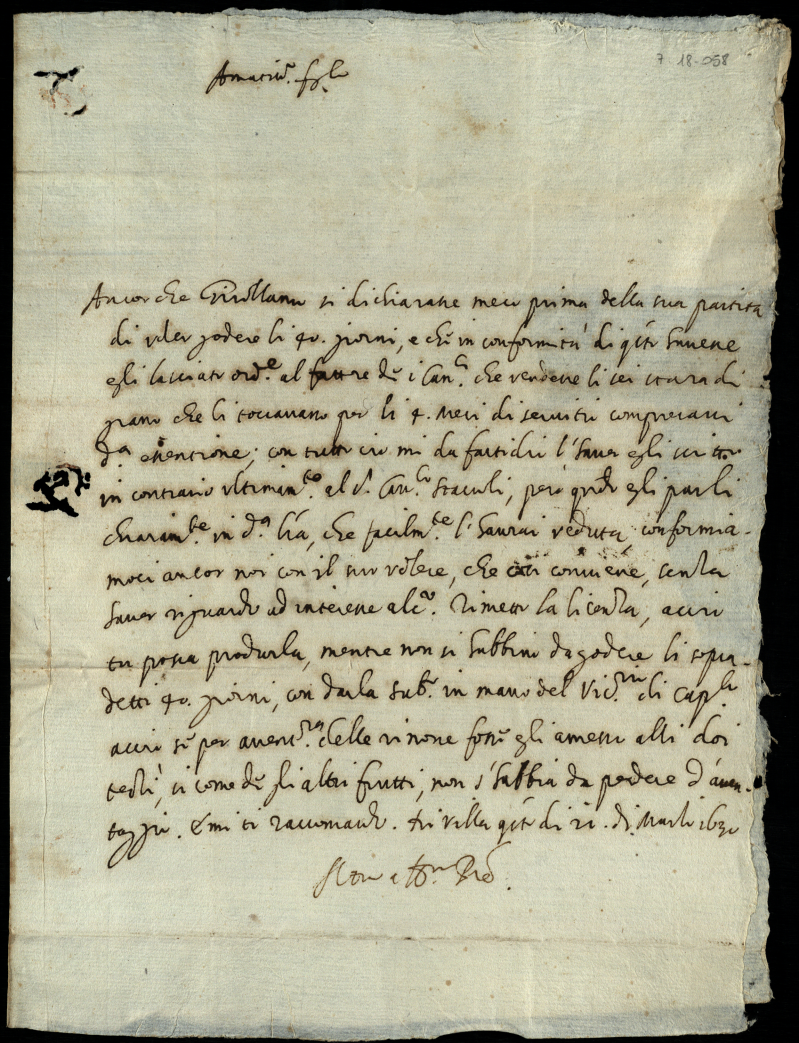 7 18-058
Amatis.º figlio
Ancor che si dichiarasse meco prima della sua partita
di voler godere li 40. giorni, e che in conformità di q.to havesse
egli lasciato ord.e al fattore de i Can.ci che vendesse li sei stara di
grano che li toccavano per li 4. mesi di servitù compresavi
d.a essentione; con tutto ciò mi da fastidio l'haver egli scritto
in contrario ultimam.te al S. Can.co però q.do egli parli
chiaram.te in d.a l'ra, che facilm.te l'havrai veduta conformia-
moci ancor noi con il suo volere, che così conviene, senza
haver riguardo ad interesse alc.º Rimetto la licenza, acciò
tu possa produrla, mentre non si habbino da godere li sopra-
detti 40. giorni, con darla sub.º in mano del Vic.rio di
acciò se per avent.ra delle fosse gli amessi alli doi
si come de gli altri frutti, non s'habbia da perdere d'avan-
taggio. E mi ti raccomando. Di villa q.to di 21. di 1630
Pre.